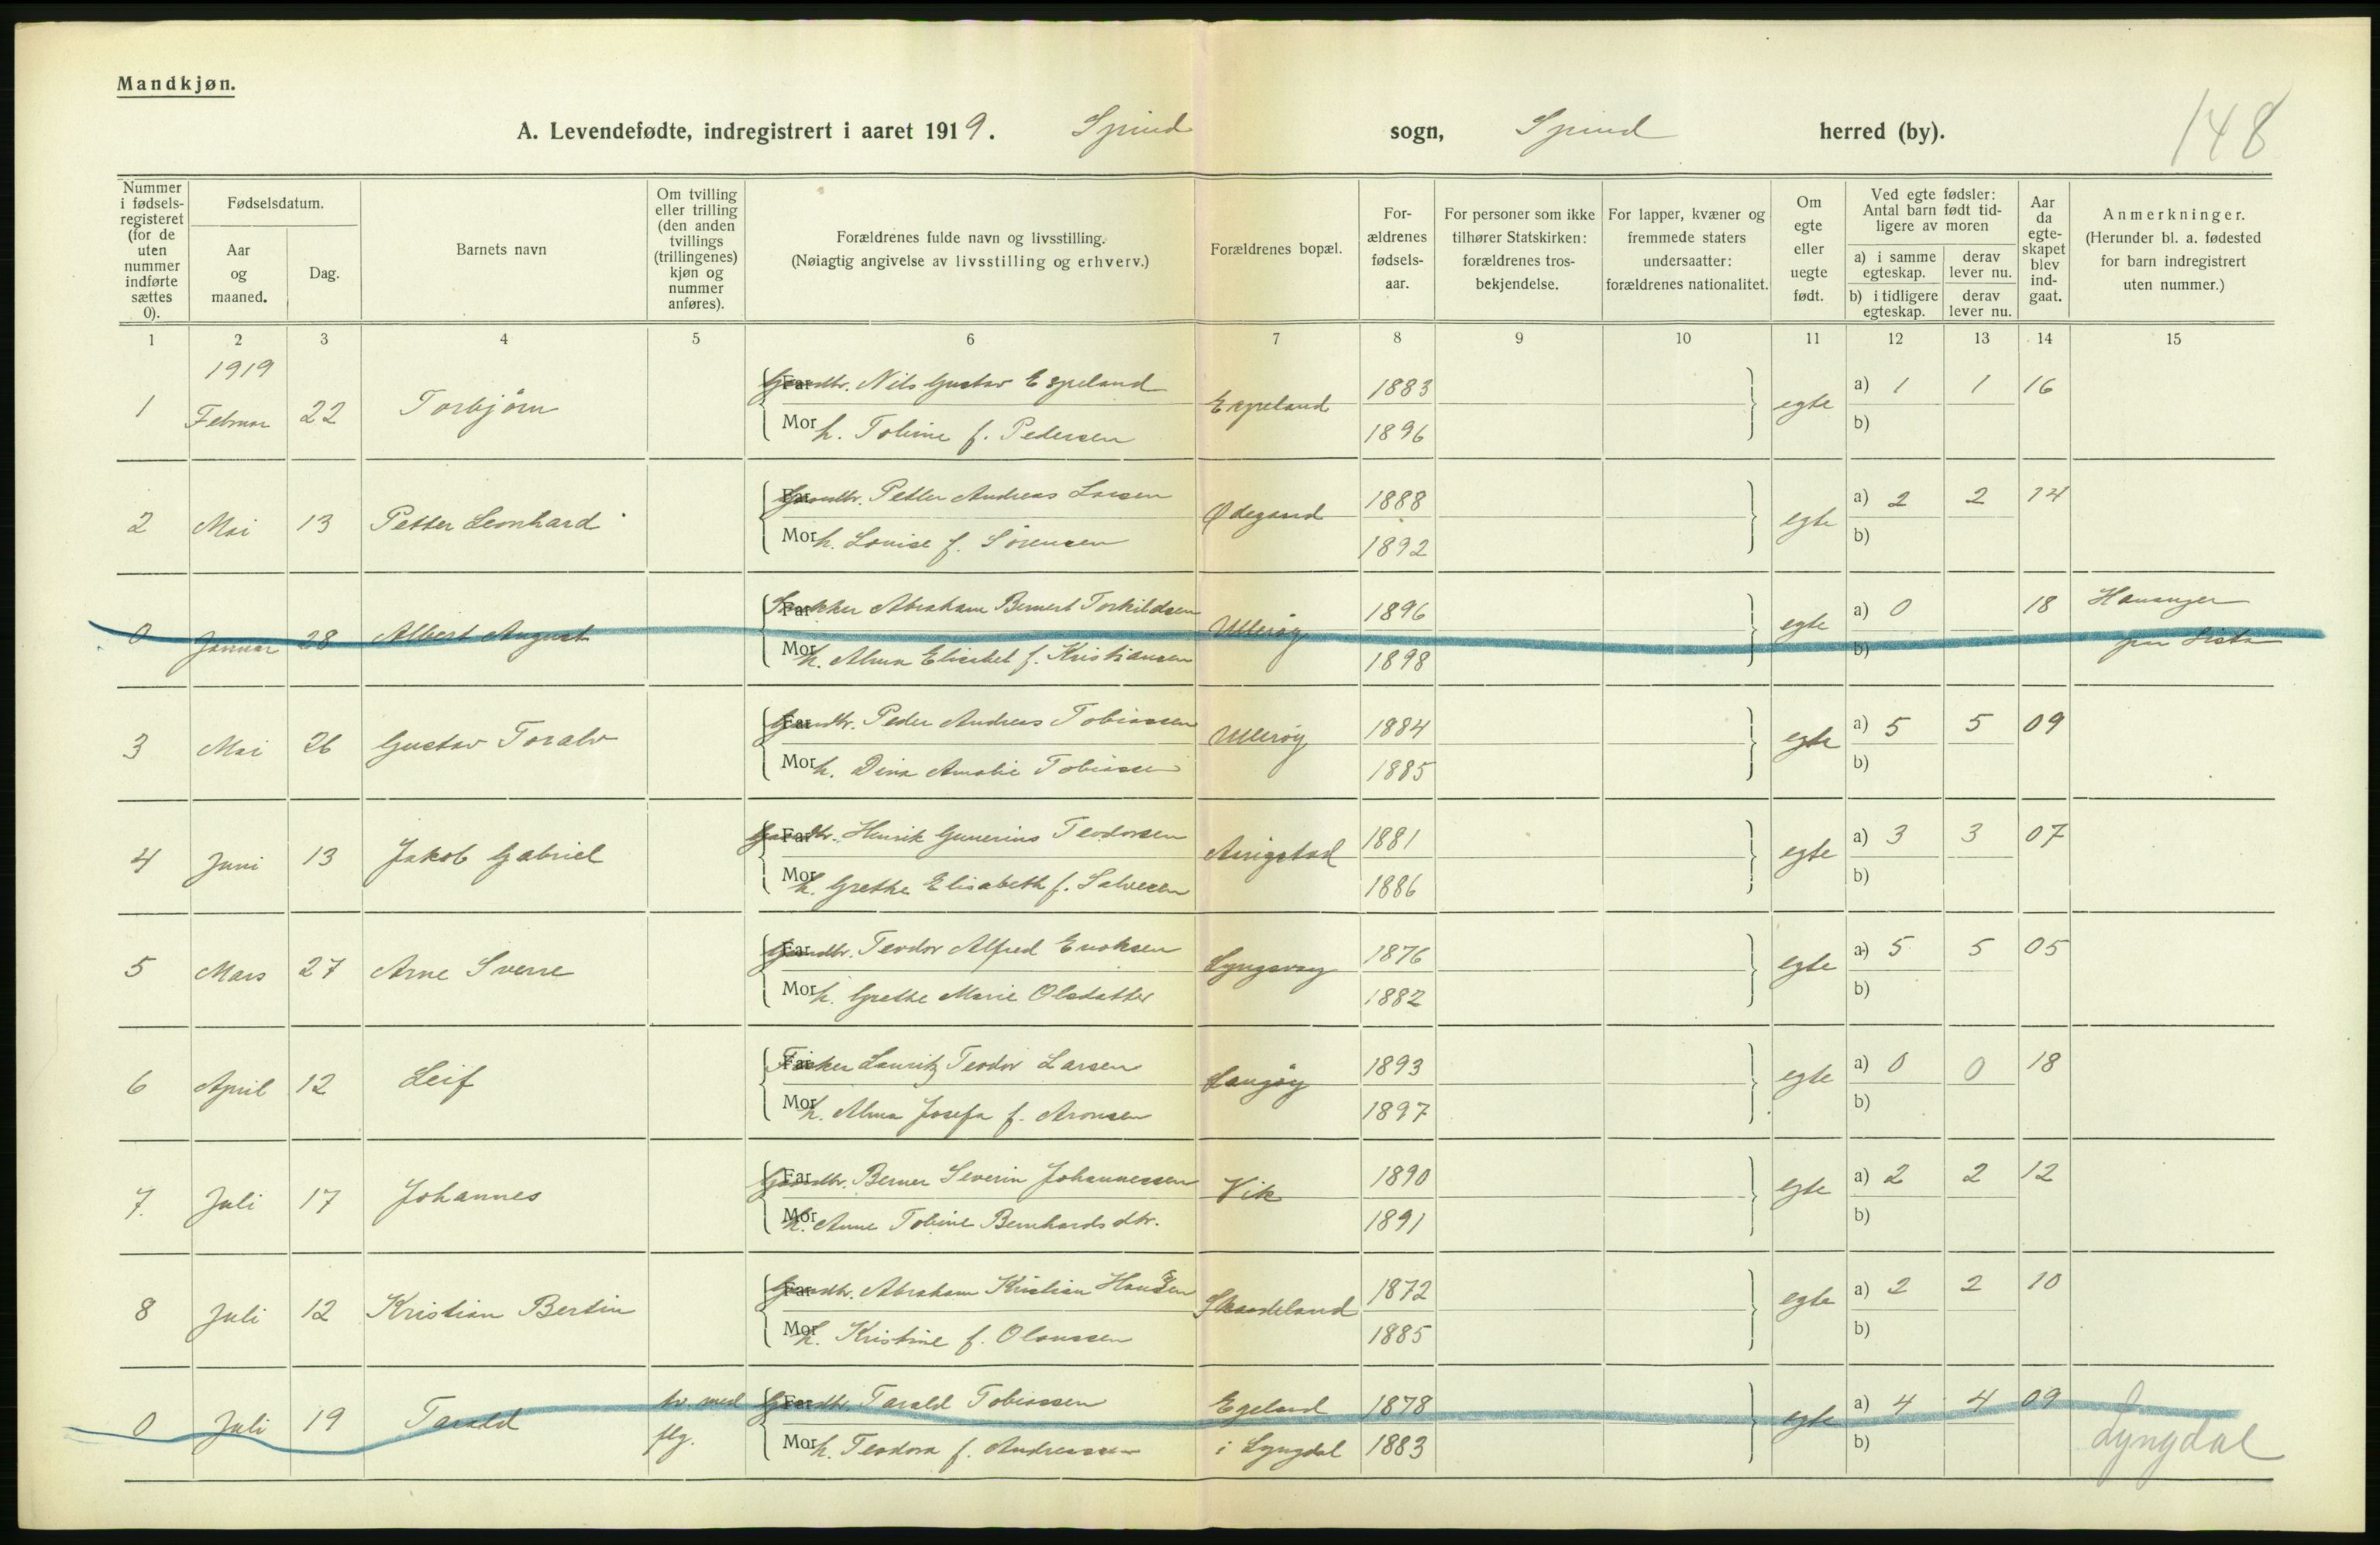 Mandkjøn.
148
A. Levendefødte, indregistrert i aaret 1919. Spind sogn, Spind herred (by).
Nummer i fødsels-registeret (for de uten nummer indførte sættes 0).
Fødselsdatum.
Aar og maaned.
Dag.
Barnets navn
Om tvilling eller trilling (den anden tvillings (trillingenes) kjøn og nummer anføres).
Forældrenes fulde navn og livsstilling.
(Nøiagtig angivelse av livsstilling og erhverv.)
Forældrenes bopæl.
For-ældrenes fødsels-aar.
For personer som ikke tilhører Statskirken: forældrenes tros-bekjendelse.
For lapper, kvæner og fremmede staters undersaatter: forældrenes nationalitet.
Om egte eller uegte født.
Ved egte fødsler: Antal barn født tid-ligere av moren
a) i samme egteskap.
derav lever nu.
b) i tidligere egteskap.
derav lever nu.
Aar da egte-skapet blev ind-gaat.
Anmerkninger.
(Herunder bl. a. fødested for barn indregistrert uten nummer.)
1 2 3 4 5 6 7 8 9 10 11 12 13 14 15
1919
Far Gaardbr. Nils Gustav Espeland 1883 a) 1 1 16
1 Februar 22 Torbjørn Espeland egte
Mor h. Toline f. Pedersen 1896 b)
Far Gaardbr. Petter Andreas Larsen 1888 a) 2 2 14
2 Mai 13 Petter Leonhard Ødegaard egte
Mor h. Louise f. Sørensen 1892 b)
Far Abraham Bernert Torkildsen 1896 a) 0 18 Hananger
0 Januar 28 Albert August Ullerøy egte paa Lista
Mor h. Alma Elisabet f. Kristiansen 1898 b)
Far Gaardbr. Peder Andreas Tobiassen 1884 a) 5 5 09
3 Mai 26 Gustav Toralv Ullerøy egte
Mor h. Dina Amalie Tobiassen 1885 b)
Far Gaardbr. Henrik Gunerius Teodorsen 1881 a) 3 3 07
4 Juni 13 Jakob Gabriel egte
Mor h. Grethe Elisabeth f. Salvesen 1886 b)
Far Gaardbr. Teodor Alfred Enoksen 1876 a) 5 5 05
5 Mars 27 Arne Sverre Lyngsvaag egte
Mor h. Grethe Marie Olsdatter 1882 b)
Far Fisker Lauritz Teodor Larsen 1893 a) 0 0 18
6 April 12 Leif Langøy egte
Mor h. Alma Josefa f. Aronsen 1897 b)
Far Gaardbr. Berner Severin Johannessen 1890 a) 2 2 12
7. Juli 17 Johannes Vik egte
Mor h. Anne Toline Bernhardsdtr. 1891 b)
Far Gaardbr. Abraham Kristian Hansen 1872 a) 2 2 10
8 Juli 12 Kristian Bertin Skaadeland egte
Mor h. Kristine f. Olaussen 1885 b)
tv. med Far Gaardbr. Tarald Tobiassen Egeland 1878 a) 4 4 09
0 Juli 19 Tarald egte
flg. Mor h. Teodora f. Andreassen i Lyngdal 1883 b) Lyngdal